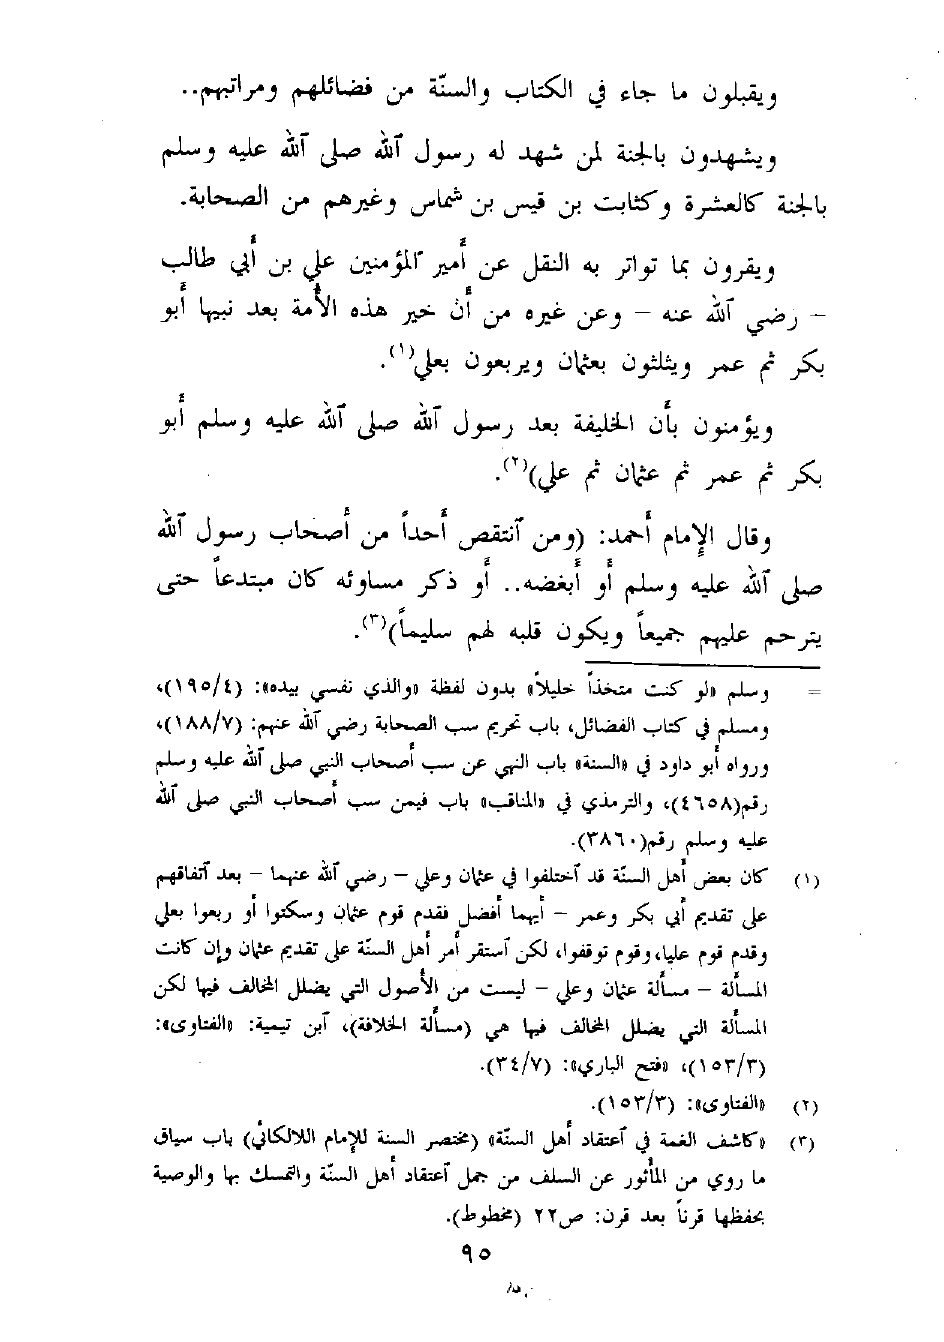 ويقبلون ما جاء في الكتاب والسنّة من فضائلهم ومراتبهم..
ويشهدون بالجنة لمن شهد له رسول ٱلله صلى ٱلله عليه وسلم
بالجنة كالعشرة وكثابت بن قيس بن شماس وغيرهم من الصحابة.
ويقرون بما تواتر به النقل عن أمير ٱلمؤمنين علي بن أبي طالب
– رضي ٱلله عنه – وعن غيره من أن خير هذه الأمة بعد نبيها أبو
بكر ثم عمر ويثلثون بعثمان ويربعون بعلي(١).
ويؤمنون بأن الخليفة بعد رسول ٱلله صلى ٱلله عليه وسلم أبو
بكر ثم عمر ثم عثمان ثم علي)(٢).
وقال الإمام أحمد: (ومن ٱنتقص أحداً من أصحاب رسول ٱلله
صلى ٱلله عليه وسلم أو أبغضه.. أو ذكر مساوئه كان مبتدعاً حتى
يترحم عليهم جميعاً ويكون قلبه لهم سليماً)(٣).
= وسلم «لو كنت متخذاً خليلاً» بدون لفظة «والذي نفسي بيده»: (١٩٥/٤)،
ومسلم في كتاب الفضائل، باب تحريم سب الصحابة رضي ٱلله عنهم: (١٨٨/٧)،
ورواه أبو داود في «السنة» باب النهي عن سب أصحاب النبي صلى ٱلله عليه وسلم
رقم(٤٦٥٨)، والترمذي في «المناقب» باب فيمن سب أصحاب النبي صلى ٱلله
عليه وسلم رقم(٣٨٦٠).
(١) كان بعض أهل السنّة قد ٱختلفوا في عثمان وعلي – رضي ٱلله عنهما – بعد ٱتفاقهم
على تقديم أبي بكر وعمر – أيهما أفضل فقدم قوم عثمان وسكتوا أو ربعوا بعلي
وقدم قوم عليا، وقوم توقفوا، لكن ٱستقر أمر أهل السنّة على تقديم عثمان وإن كانت
المسألة – مسألة عثمان وعلي – ليست من الأصول التي يضلل المخالف فيها لكن
المسألة التي يضلل المخالف فيها هي (مسألة الخلافة)، ٱبن تيمية: «الفتاوى»:
(١٥٣/٣)، «فتح الباري»: (٣٤/٧).
(٢) «الفتاوى»: (١٥٣/٣).
(٣) «كاشف الغمة في ٱعتقاد أهل السنّة» (مختصر السنة للإمام اللالكائي) باب سياق
ما روي من المأثور عن السلف من جمل ٱعتقاد أهل السنّة والتمسك بها والوصية
بحفظها قرناً بعد قرن: ص٢٢ (مخطوط).
٩٥